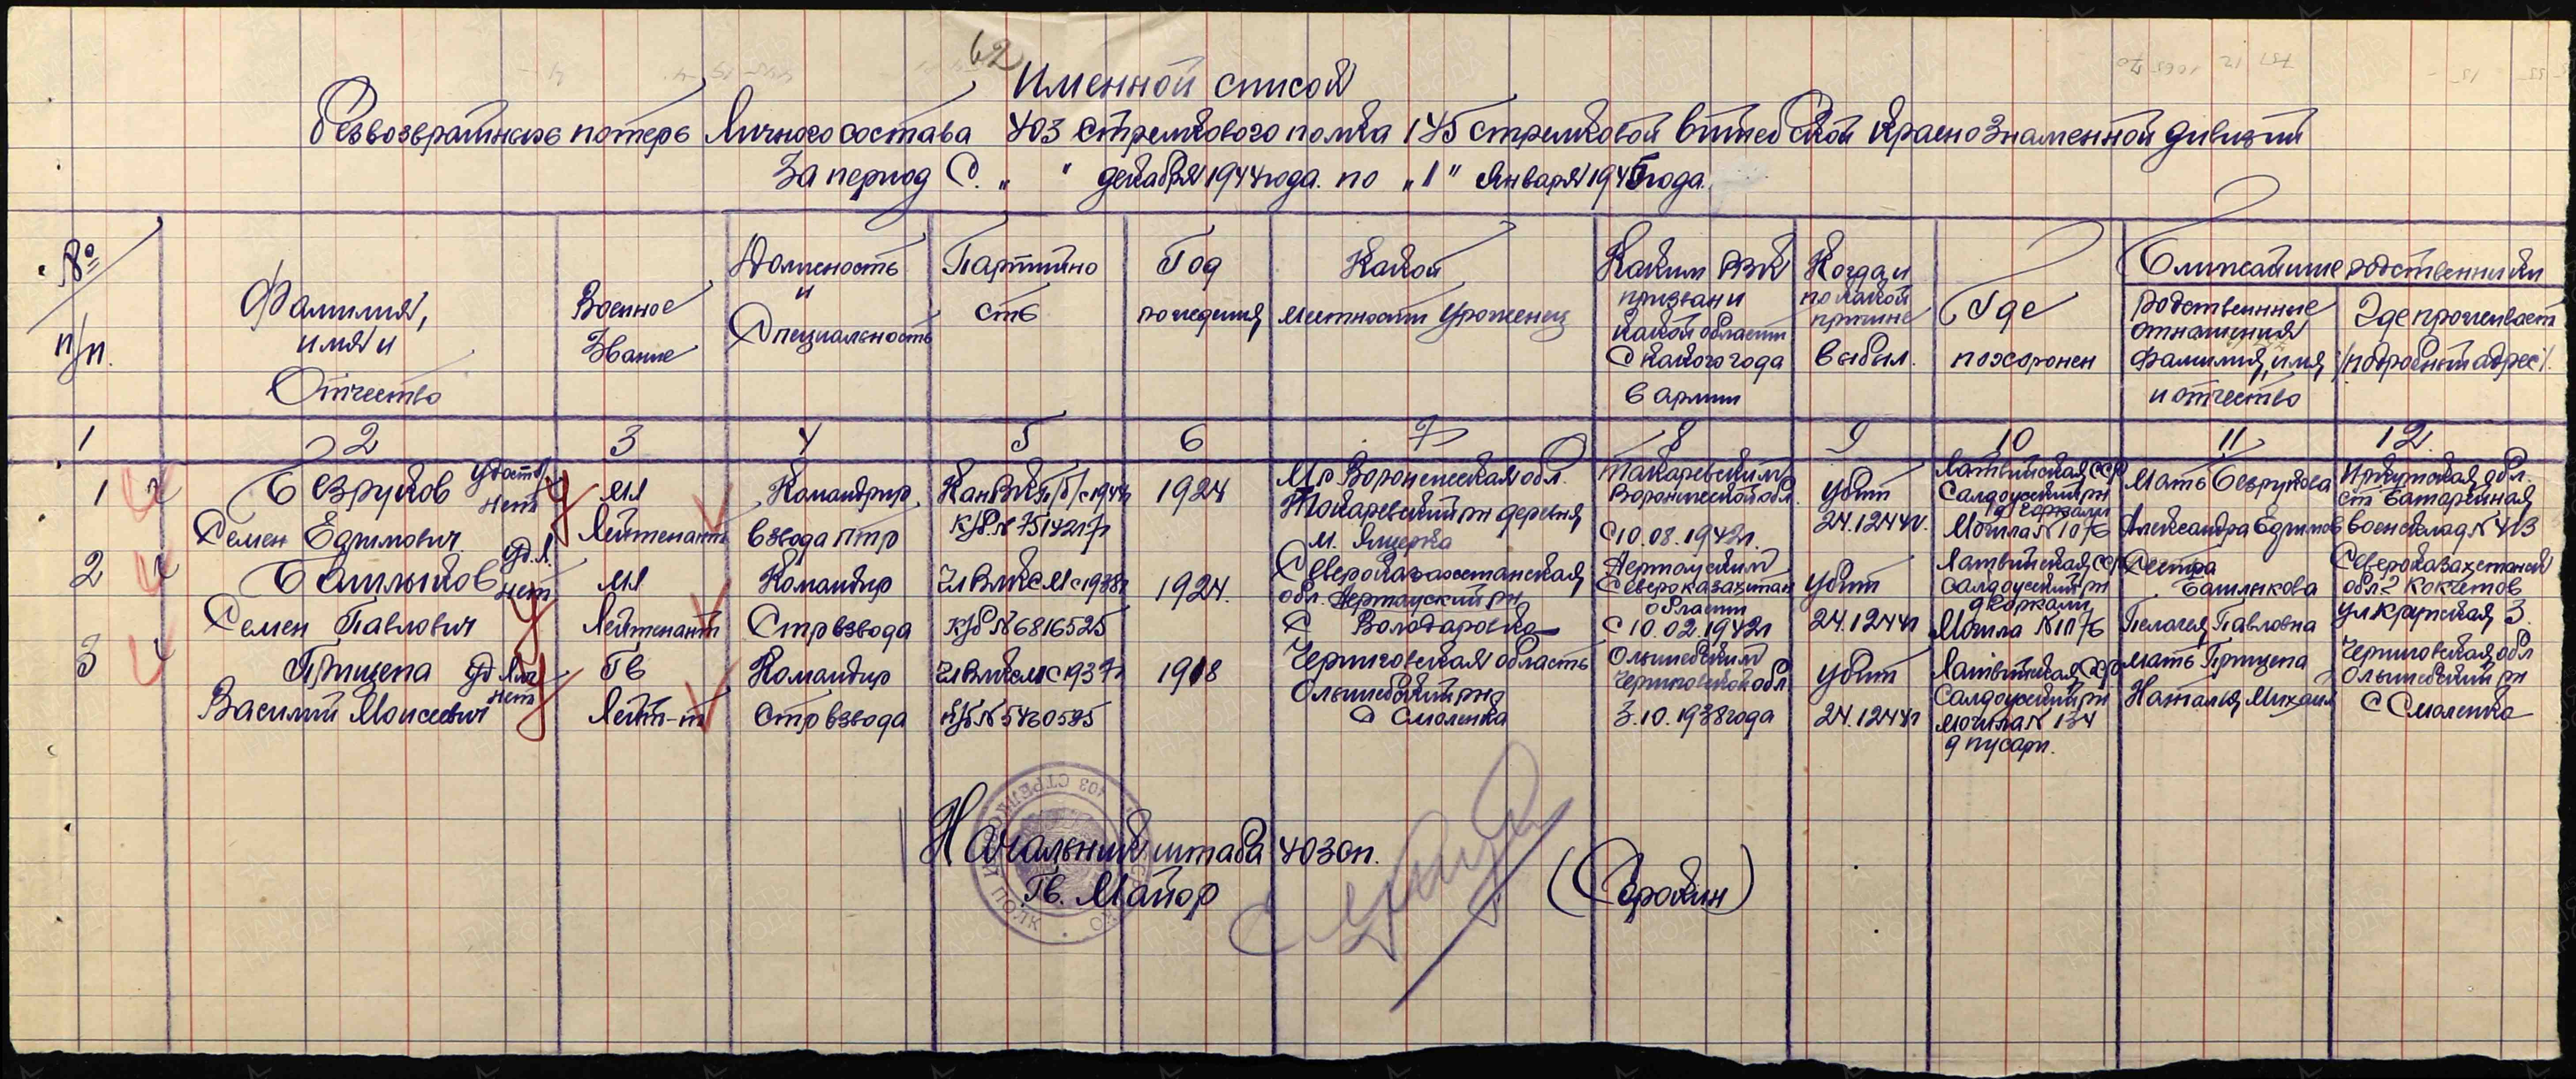 62
Именной список
безвозвратных потерь личного состава 403 стрелкового полка 145 стрелковой Витебской краснознаменной дивизии
За период с „ " декабря 1944 года. по „1" Января 1945 года.
№ п/п.
Фамилия, имя и Отчество
Военное Звание
Должность и Специальность
Партийность
Год рождения
Какой местности Уроженец
Каким РВК призван и какой области С какого года в армии
Когда и по какой причине выбыл.
Где похоронен
Ближайшие родственники
Родственные отношения фамилия, имя и отчество
Где проживает /подробный адрес/.
1 2 3 4 5 6 7 8 9 10 11 12.
1
Безруков
нет
Семен Ефимович
Мл Лейтенант
Командир взвода птр
Кан ВКП/б/ с 1944
К/К № 7514217
1924
Воронежская обл.
Токаревский рн деревня
М.
Токаревским
Воронежской обл.
С 10.08.1942г.
убит
24.12.44г.
Латвийская ССР
Салдусский рн
Могила № 1076
Мать Безрукова
Александра Ефимов
Иркутская обл.
ст Батарейная
военсклад № 413
2
уд. л. нет
Семен Павлович
Мл Лейтенант
Командир Стр взвода
Чл ВЛКСМ с 1938г
№ 6816525
1924.
Североказахстанская
обл. Аертауский рн
С Володаровка
Аертауским
Североказахстан
области
С 10.02.1942г
Убит
24.12.44г
Латвийская ССР
Салдусский рн
Могила № 1076
Сестра
Пелагея Павловна
Североказахстанская
обл г Кокчетов
ул Крупская 3.
3
Прищепа
нет
Василий Моисеевич
Гв Лейт-т
Командир Стр взвода
Чл ВЛКСМ с 1937г
№ 5460585
1918
Черниговская область
Олышевский рнд
С Смолянка
Олышевским
Черниговской обл
3.10.1938 года
убит
24.12.44г
Латвийская ССР
Салдусский рн
могила № 134
д пусари.
мать Прищепа
Наталия Михаил
Черниговская обл
Олышевский рн
С Смолянка
403 СТРЕЛКО
Начальник штаба 403 сп.
Гв. Майор
(Сорокин)